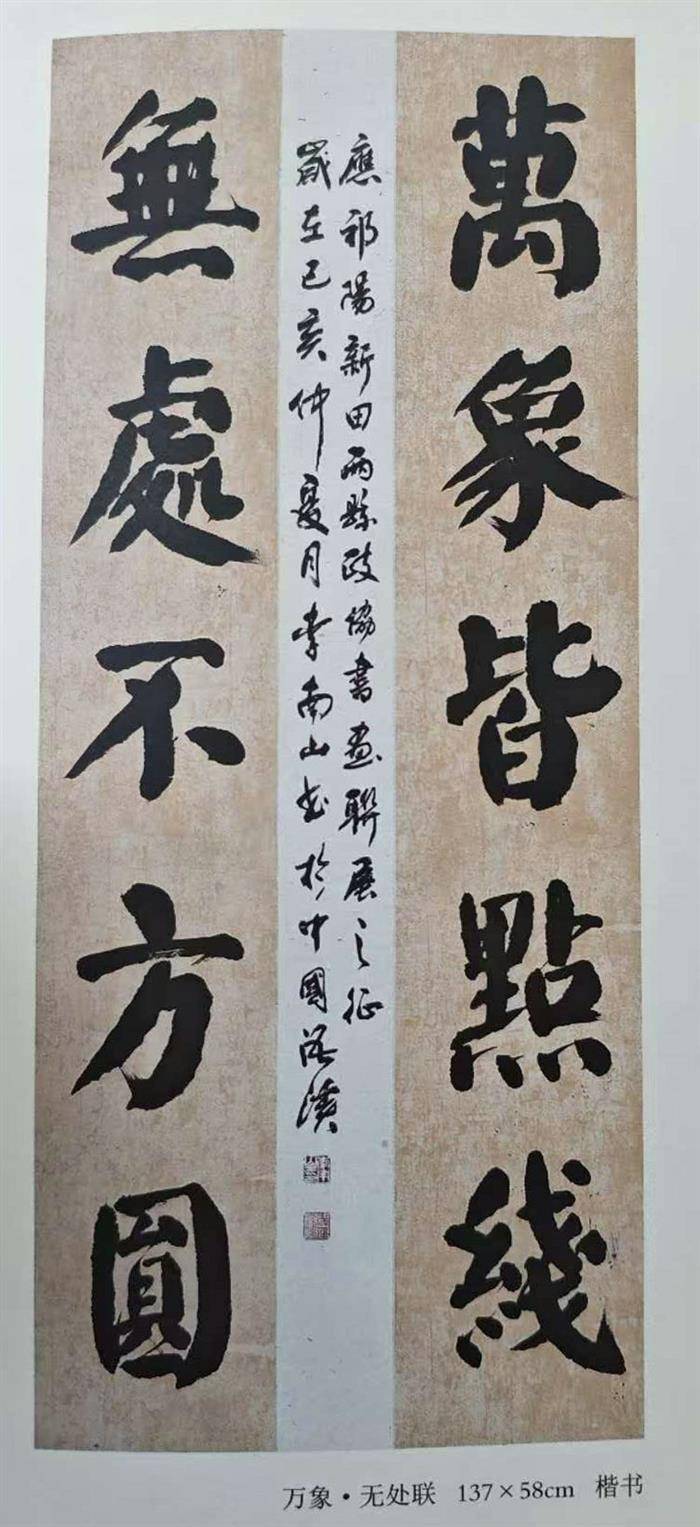 萬象皆點綫
無處不方圓
應祁陽新田兩縣政協書画聯展之征
歲在己亥仲夏月李南山書於中國浯溪
万象·无处联 137×58cm 楷书